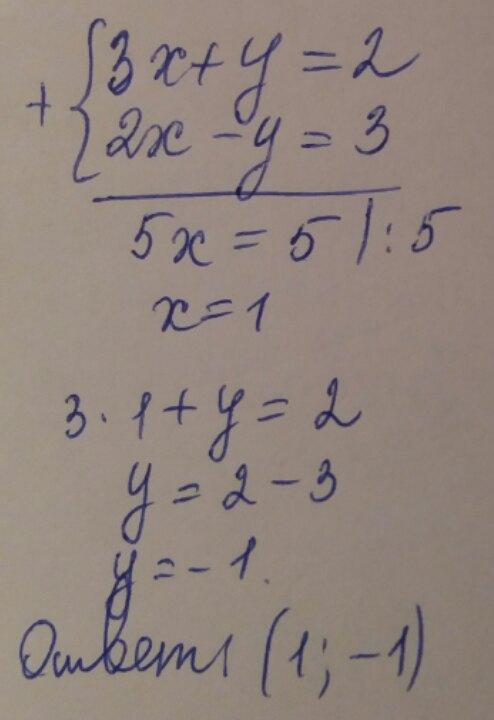 + { 3x + y = 2
2x - y = 3
5x = 5 | : 5
x = 1
3 · 1 + y = 2
y = 2 - 3
y = - 1.
Ответ: (1; -1)